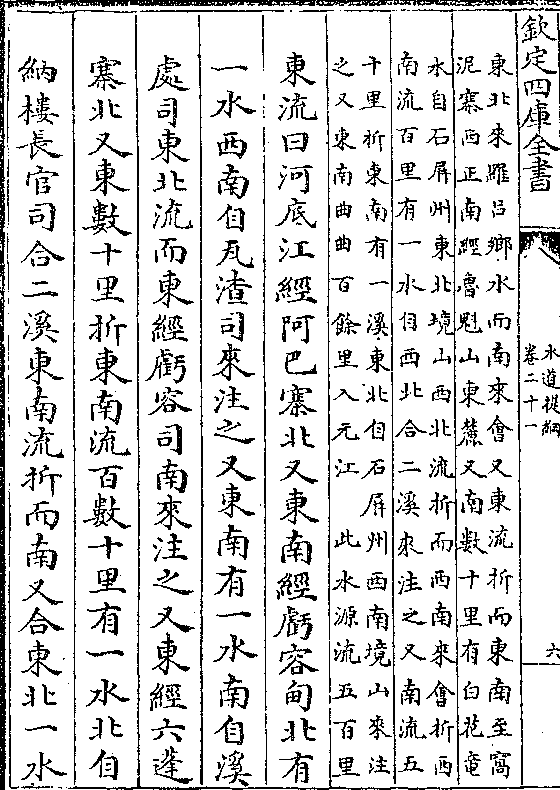 欽定四庫全書
水道提綱
卷二十一
六
東北來羅呂鄉水而南來會又東流折而東南至窩
泥寨西正南經魯魁山東麓又南數十里有白花菴
水自石屏州東北境山西北流折而西南來會折西
南流百里有一水自西北合二溪來注之又南流五
十里折東南有一溪東北自石屏州西南境山來注
之又東南曲曲百餘里入元江 此水源流五百里
東流曰河底江經阿巴寨北又東南經虧容甸北有
一水西南自瓦渣司來注之又東南有一水南自溪
處司東北流而東經虧容司南來注之又東經六蓬
寨北又東數十里折東南流百數十里有一水北自
納樓長官司合二溪東南流折而南又合東北一水